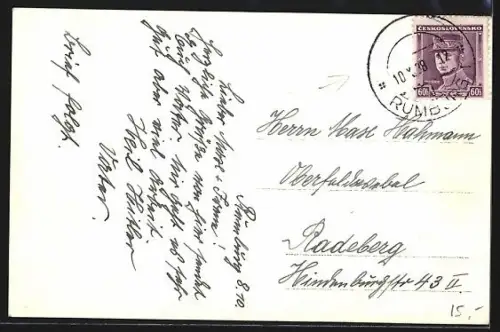 Rumburg 8.10
Lieber Max u. Irma!
Herzliche Grüße von hier sendet
Euch Vater. Mir geht es sehr
Gut aber viel Arbeit
Heil Hitler
Vater.
Brief folgt.
ČESKOSLOVENSKO
60h 60h
10.X.38
RUMBURK
Herrn Max Hahmann
Oberfeldwebel
Radeberg
Hindenburgstr 43 II.
15.-